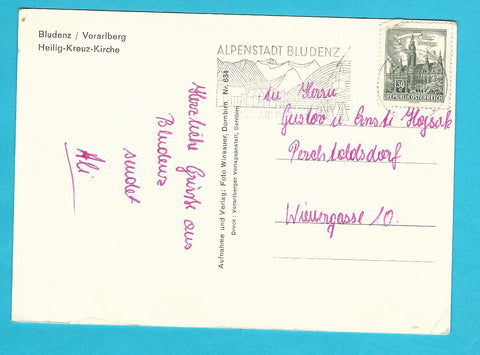 Bludenz / Vorarlberg
Heilig-Kreuz-Kirche
ALPENSTADT BLUDENZ
REPUBLIK ÖSTERREICH
Herzliche Grüße aus
Bludenz
sendet
Ali
Aufnahme und Verlag: Foto Winsauer, Dornbirn Nr. 634
Druck: Vorarlberger Verlagsanstalt, Dornbirn
An Herrn
Gustav u Ernsti
Perchtoldsdorf
Wienergasse 10.